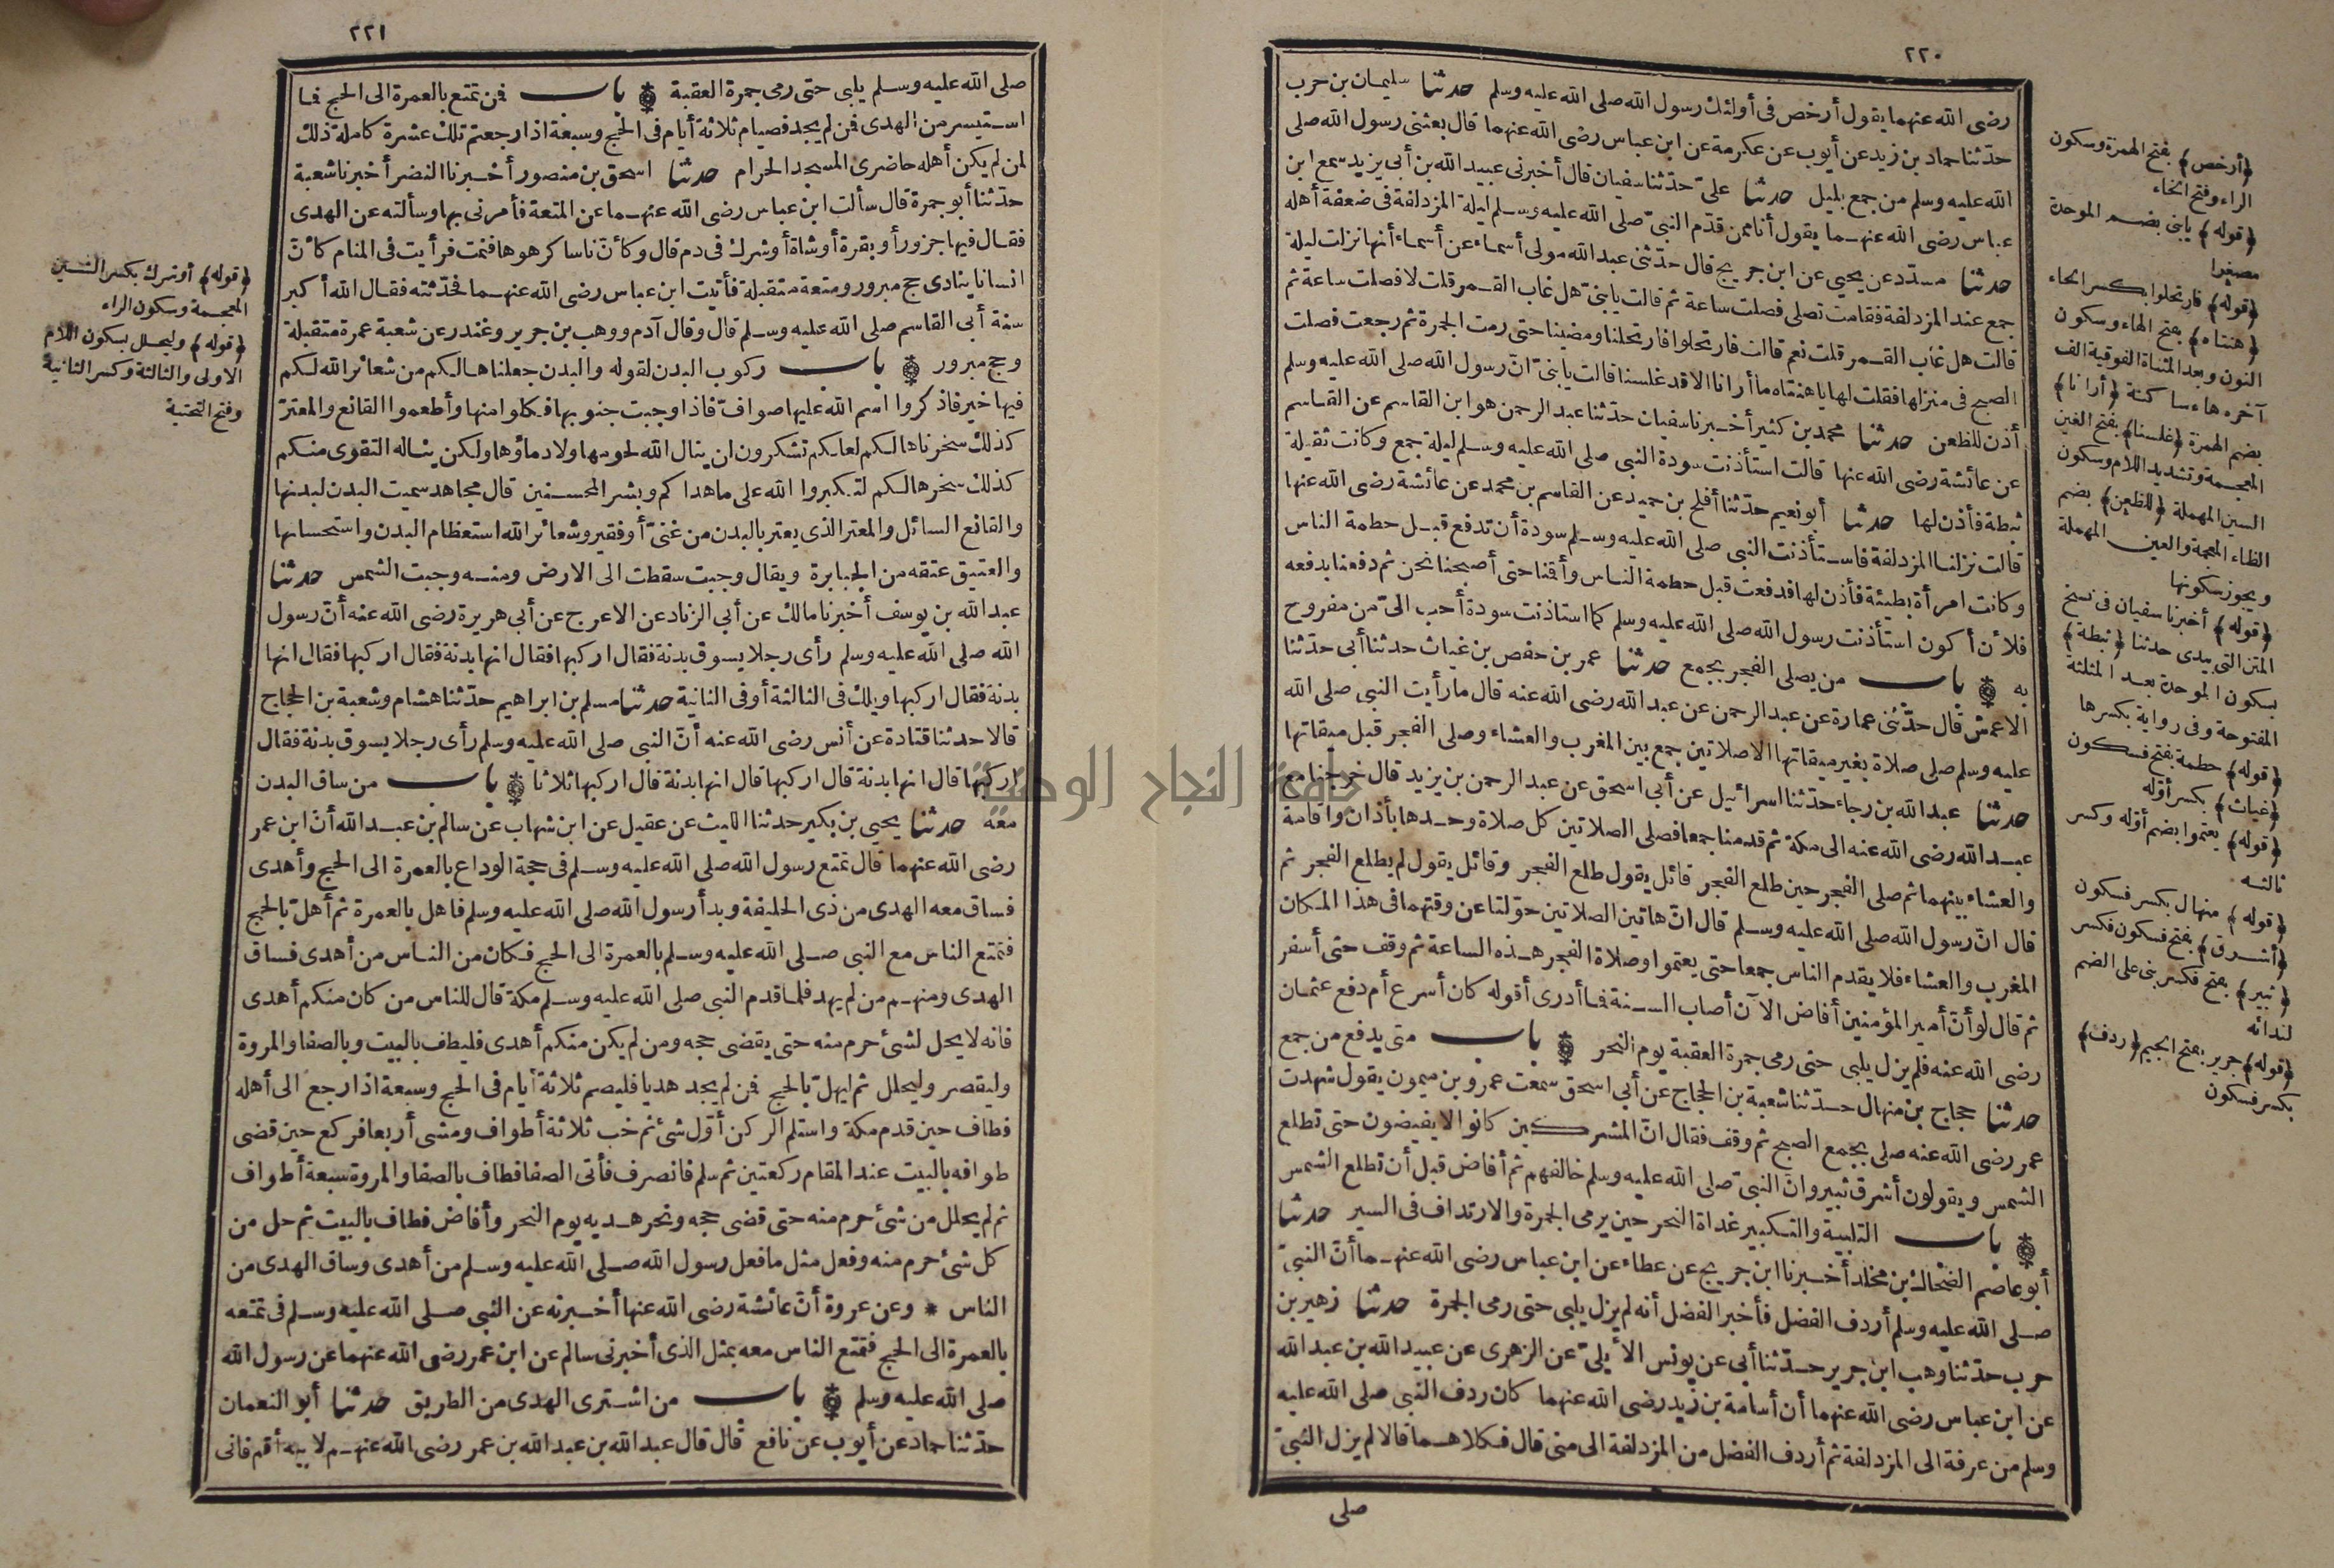 ٢٢٠
رضى الله عنهما يقول أرخص فى أولئك رسول الله صلى الله عليه وسلم حدثنا سليمان بن حرب
حدّثنا حماد بن زيد عن أيوب عن عكرمة عن ابن عباس رضى الله عنهما قال بعثنى رسول الله صلى
الله عليه وسلم من جمع بليل حدثنا علىّ حدّثنا سفيان قال أخبرنى عبيد الله بن أبى يزيد سمع ابن
عباس رضى الله عنهما يقول أنا ممن قدّم النبىّ صلى الله عليه وسلم ليلة المزدلفة فى ضعفة أهله
حدثنا مسدّد عن يحيى عن ابن جريج قال حدّثنى عبد الله مولى أسماء عن أسماء أنها نزلت ليلة
جمع عند المزدلفة فقامت تصلى فصلت ساعة ثم قالت يابنىّ هل غاب القمر قلت لا فصلت ساعة ثم
قالت هل غاب القمر قلت نعم قالت فارتحلوا فارتحلنا ومضينا حتى رمت الجمرة ثم رجعت فصلت
الصبح فى منزلها فقلت لها ياهنتاه ما أرانا الا قد غلسنا قالت يابنىّ انّ رسول الله صلى الله عليه وسلم
أذن للظعن حدثنا محمد بن كثير أخبرنا سفيان حدّثنا عبد الرحمن هو ابن القاسم عن القاسم
عن عائشة رضى الله عنها قالت استأذنت سودة النبى صلى الله عليه وسلم ليلة جمع وكانت ثقيلة
ثبطة فأذن لها حدثنا أبو نعيم حدّثنا أفلح بن حميد عن القاسم بن محمد عن عائشة رضى الله عنها
قالت نزلنا المزدلفة فاستأذنت النبى صلى الله عليه وسلم سودة أن تدفع قبل حطمة الناس
وكانت امرأة بطيئة فأذن لها فدفعت قبل حطمة الناس وأقنا حتى أصبحنا نحن ثم دفعنا بدفعه
فلأن أكون استأذنت رسول الله صلى الله عليه وسلم كما استاذنت سودة أحب الىّ من مفروح
به باب من يصلى الفجر بجمع حدثنا عمر بن حفص بن غياث حدثنا أبى حدّثنا
الاعمش قال حدّثنى عمارة عن عبد الرحمن عن عبد الله رضى الله عنه قال مارأيت النبى صلى الله
عليه وسلم صلى صلاة بغير ميقاتها الا صلاتين جمع بين المغرب والعشاء وصلى الفجر قبل ميقاتها
حدثنا عبد الله بن رجاء حدّثنا اسرائيل عن أبى اسحق عن عبد الرحمن بن يزيد قال خرجنا مع
عبد الله رضى الله عنه الى مكة ثم قدمنا جمعا فصلى الصلاتين كل صلاة وحدها بأذان واقامة
والعشاء بينهما ثم صلى الفجر حين طلع الفجر قائل يقول طلع الفجر وقائل يقول لم يطلع الفجر ثم
قال انّ رسول الله صلى الله عليه وسلم قال انّ هاتين الصلاتين حوّلتا عن وقتهما فى هذا المكان
المغرب والعشاء فلا يقدم الناس جمعا حتى يعتموا وصلاة الفجر هذه الساعة ثم وقف حتى أسفر
ثم قال لو أنّ أمير المؤمنين أفاض الآن أصاب السنة فما أدرى أقوله كان أسرع أم دفع عثمان
رضى الله عنه فلم يزل يلبى حتى رمى جمرة العقبة يوم النحر باب متى يدفع من جمع
حدثنا حجاج بن منهال حدّثنا شعبة بن الحجاج عن أبى اسحق سمعت عمرو بن ميمون يقول شهدت
عمر رضى الله عنه صلى بجمع الصبح ثم وقف فقال انّ المشركين كانوا لا يفيضون حتى تطلع
الشمس ويقولون أشرق ثبير وانّ النبىّ صلى الله عليه وسلم خالفهم ثم أفاض قبل أن تطلع الشمس
باب التلبية والتكبير غداة النحر حين يرمى الجمرة والارتداف فى السير حدثنا
أبو عاصم الضحاك بن مخلد أخبرنا ابن جريج عن عطاء عن ابن عباس رضى الله عنهما أنّ النبىّ
صلى الله عليه وسلم أردف الفضل فأخبر الفضل أنه لم يزل يلبى حتى رمى الجمرة حدثنا زهير بن
حرب حدّثنا وهب ابن جرير حدّثنا أبى عن يونس الأيلىّ عن الزهرى عن عبيد الله بن عبد الله
عن ابن عباس رضى الله عنهما أن أسامة بن زيد رضى الله عنهما كان ردف النبى صلى الله عليه
وسلم من عرفة الى المزدلفة ثم أردف الفضل من المزدلفة الى منى قال فكلاهما قالا لم يزل النبىّ
صلى
﴿أرخص﴾ بفتح الهمزة وسكون
الراء وفتح الخاء
﴿قوله﴾ يابنى بضم الموحدة
مصغرا
﴿قوله﴾ فارتحلوا بكسر الحاء
﴿هنتاه﴾ بفتح الهاء وسكون
النون وبعد المثناة الفوقية الف
آخره هاء ساكنة ﴿أرانا﴾
بضم الهمزة ﴿غلسنا﴾ بفتح الغين
المعجمة وتشديد اللام وسكون
السين المهملة ﴿للظعن﴾ بضم
الظاء المعجمة والعين المهملة
ويجوز سكونها
﴿قوله﴾ أخبرنا سفيان فى نسخ
المتن التى بيدى حدثنا ﴿ثبطة﴾
بسكون الموحدة بعد المثلثة
المفتوحة وفى رواية بكسرها
﴿قوله﴾ حطمة بفتح فسكون
﴿غياث﴾ بكسر أوّله
﴿قوله﴾ يعتموا بضم أوّله وكسر
ثالثه
﴿قوله﴾ منهال بكسر فسكون
﴿أشرق﴾ بفتح فسكون فكسر
﴿ثبير﴾ بفتح فكسر بنى على الضم
لندائه
﴿قوله﴾ جرير بفتح الجيم ﴿ردف﴾
بكسر فسكون
٢٢١
صلى الله عليه وسلم يلبى حتى رمى جمرة العقبة باب فمن تمتع بالعمرة الى الحج فما
استيسر من الهدى فمن لم يجد فصيام ثلاثة أيام فى الحج وسبعة اذا رجعتم تلك عشرة كاملة ذلك
لمن لم يكن أهله حاضرى المسجد الحرام حدثنا اسحق بن منصور أخبرنا النضر أخبرنا شعبة
حدّثنا أبو جمرة قال سألت ابن عباس رضى الله عنهما عن المتعة فأمرنى بها وسألته عن الهدى
فقال فيها جزور أو بقرة أو شاة أو شرك فى دم قال وكأنّ ناسا كرهوها فنمت فرأيت فى المنام كأنّ
انسانا ينادى حج مبرور ومتعة متقبلة فأتيت ابن عباس رضى الله عنهما فحدّثته فقال الله أكبر
سنة أبى القاسم صلى الله عليه وسلم قال وقال آدم ووهب بن جرير وغندر عن شعبة عمرة متقبلة
وحج مبرور باب ركوب البدن لقوله والبدن جعلناها لكم من شعائر الله لكم
فيها خير فاذكروا اسم الله عليها صوافّ فاذا وجبت جنوبها فكلوا منها وأطعموا القانع والمعترّ
كذلك سخرناها لكم لعلكم تشكرون لن ينال الله لحومها ولا دماؤها ولكن يناله التقوى منكم
كذلك سخرها لكم لتكبروا الله على ما هداكم وبشر المحسنين قال مجاهد سميت البدن لبدنها
والقانع السائل والمعتر الذى يعتر بالبدن من غنىّ أو فقير وشعائر الله استعظام البدن واستحسانها
والعتيق عتقه من الجبابرة ويقال وجبت سقطت الى الارض ومنه وجبت الشمس حدثنا
عبد الله بن يوسف أخبرنا مالك عن أبى الزناد عن الاعرج عن أبى هريرة رضى الله عنه أنّ رسول
الله صلى الله عليه وسلم رأى رجلا يسوق بدنة فقال اركبها فقال انها بدنة فقال اركبها فقال انها
بدنة فقال اركبها ويلك فى الثالثة أو فى الثانية حدثنا مسلم بن ابراهيم حدّثنا هشام وشعبة بن الحجاج
قالا حدثنا قتادة عن أنس رضى الله عنه أنّ النبى صلى الله عليه وسلم رأى رجلا يسوق بدنة فقال
اركبها قال انها بدنة قال اركبها قال انها بدنة قال اركبها ثلاثا باب من ساق البدن
معه حدثنا يحيى بن بكير حدثنا الليث عن عقيل عن ابن شهاب عن سالم بن عبد الله أنّ ابن عمر
رضى الله عنهما قال تمتع رسول الله صلى الله عليه وسلم فى حجة الوداع بالعمرة الى الحج وأهدى
فساق معه الهدى من ذى الحليفة وبدأ رسول الله صلى الله عليه وسلم فاهل بالعمرة ثم أهلّ بالحج
فتمتع الناس مع النبى صلى الله عليه وسلم بالعمرة الى الحج فكان من الناس من أهدى فساق
الهدى ومنهم من لم يهد فلما قدم النبى صلى الله عليه وسلم مكة قال للناس من كان منكم أهدى
فانه لا يحل لشئ حرم منه حتى يقضى حجه ومن لم يكن منكم أهدى فليطف بالبيت وبالصفا والمروة
وليقصر وليحلل ثم ليهلّ بالحج فمن لم يجد هديا فليصم ثلاثة أيام فى الحج وسبعة اذا رجع الى أهله
فطاف حين قدم مكة واستلم الركن أوّل شئ ثم خب ثلاثة أطواف ومشى أربعا فركع حين قضى
طوافه بالبيت عند المقام ركعتين ثم سلم فانصرف فأتى الصفا فطاف بالصفا والمروة سبعة أطواف
ثم لم يحلل من شئ حرم منه حتى قضى حجه ونحر هديه يوم النحر وأفاض فطاف بالبيت ثم حل من
كل شئ حرم منه وفعل مثل ما فعل رسول الله صلى الله عليه وسلم من أهدى وساق الهدى من
الناس * وعن عروة أنّ عائشة رضى الله عنها أخبرته عن النبى صلى الله عليه وسلم فى تمتعه
بالعمرة الى الحج فتمتع الناس معه بمثل الذى أخبرنى سالم عن ابن عمر رضى الله عنهما عن رسول الله
صلى الله عليه وسلم باب من اشترى الهدى من الطريق حدثنا أبو النعمان
حدّثنا حماد عن أيوب عن نافع قال قال عبد الله بن عبد الله بن عمر رضى الله عنهم لابيه أقم فانى
﴿قوله﴾ أو شرك بكسر الشين
المعجمة وسكون الراء
﴿قوله﴾ وليحلل بسكون اللام
الاولى والثالثة وكسر الثانية
وفتح التحتية
جامعة النجاح الوطنية